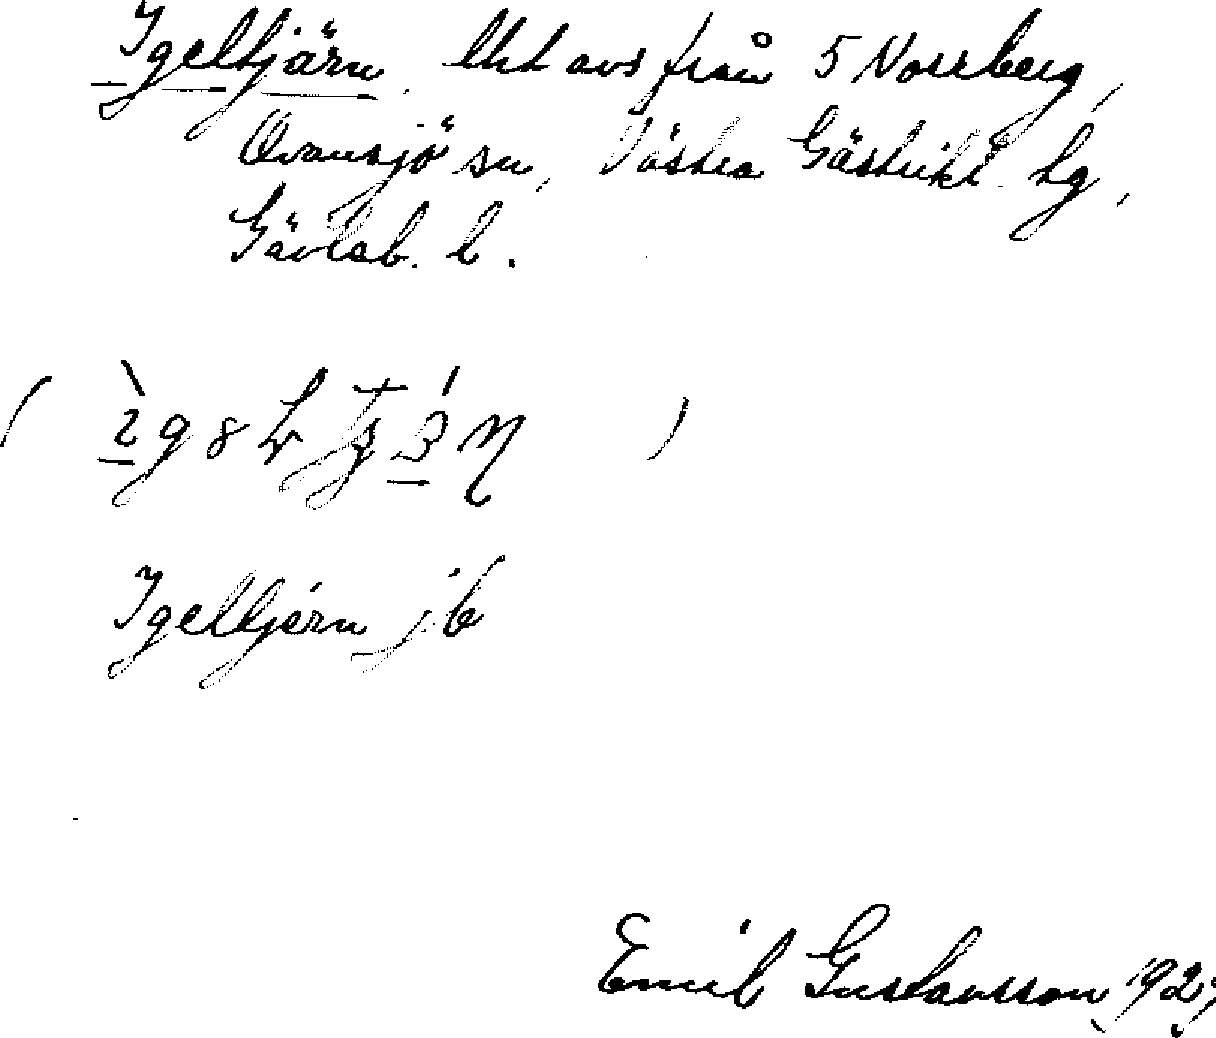 Igeltjärn. lht avs från 5 Norrberg,
Ovansjö sn, Västra Gästrikl. hg,
Gävleb. l.
Igeltjärn jb
Emil Gustavsson 1927